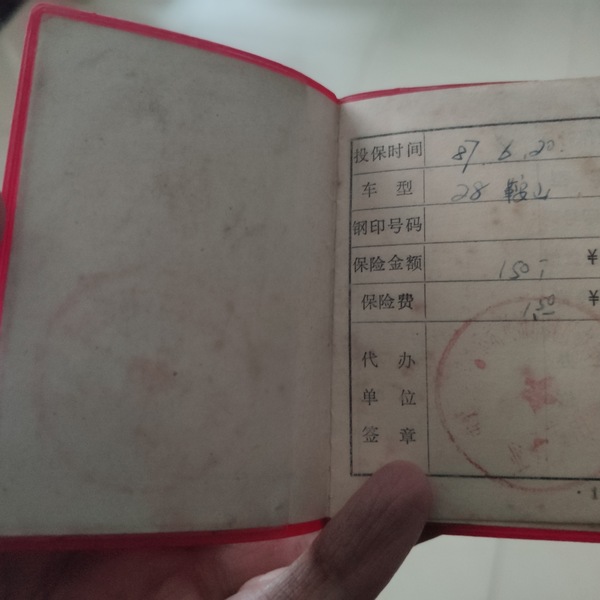 投保时间 87.6.20.
车型 28 鞍山
钢印号码
保险金额 150 ¥
保险费 1.50 ¥
代办
单位
签章
·1